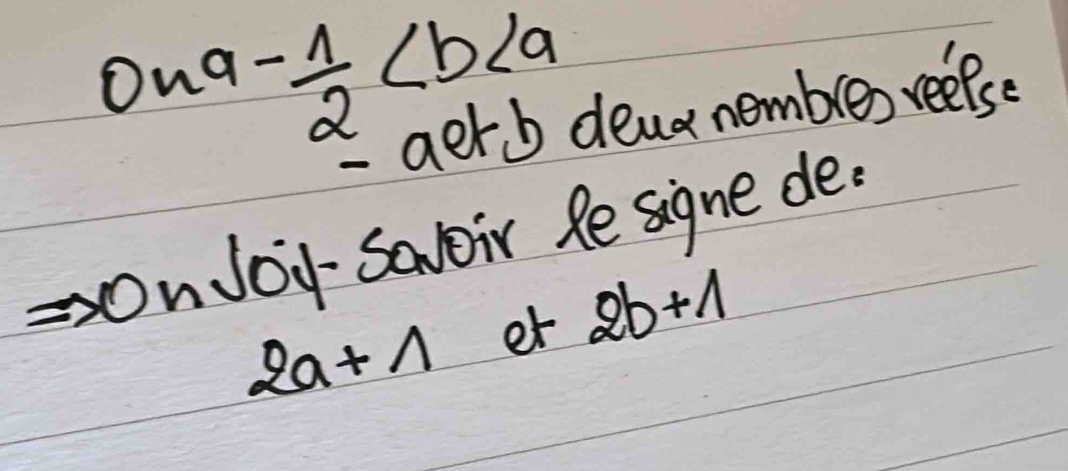 On a - 1/2 < b < a
- a et b deux nombres réels:
⇒ On doit savoir le signe de:
2a + 1 et 2b + 1